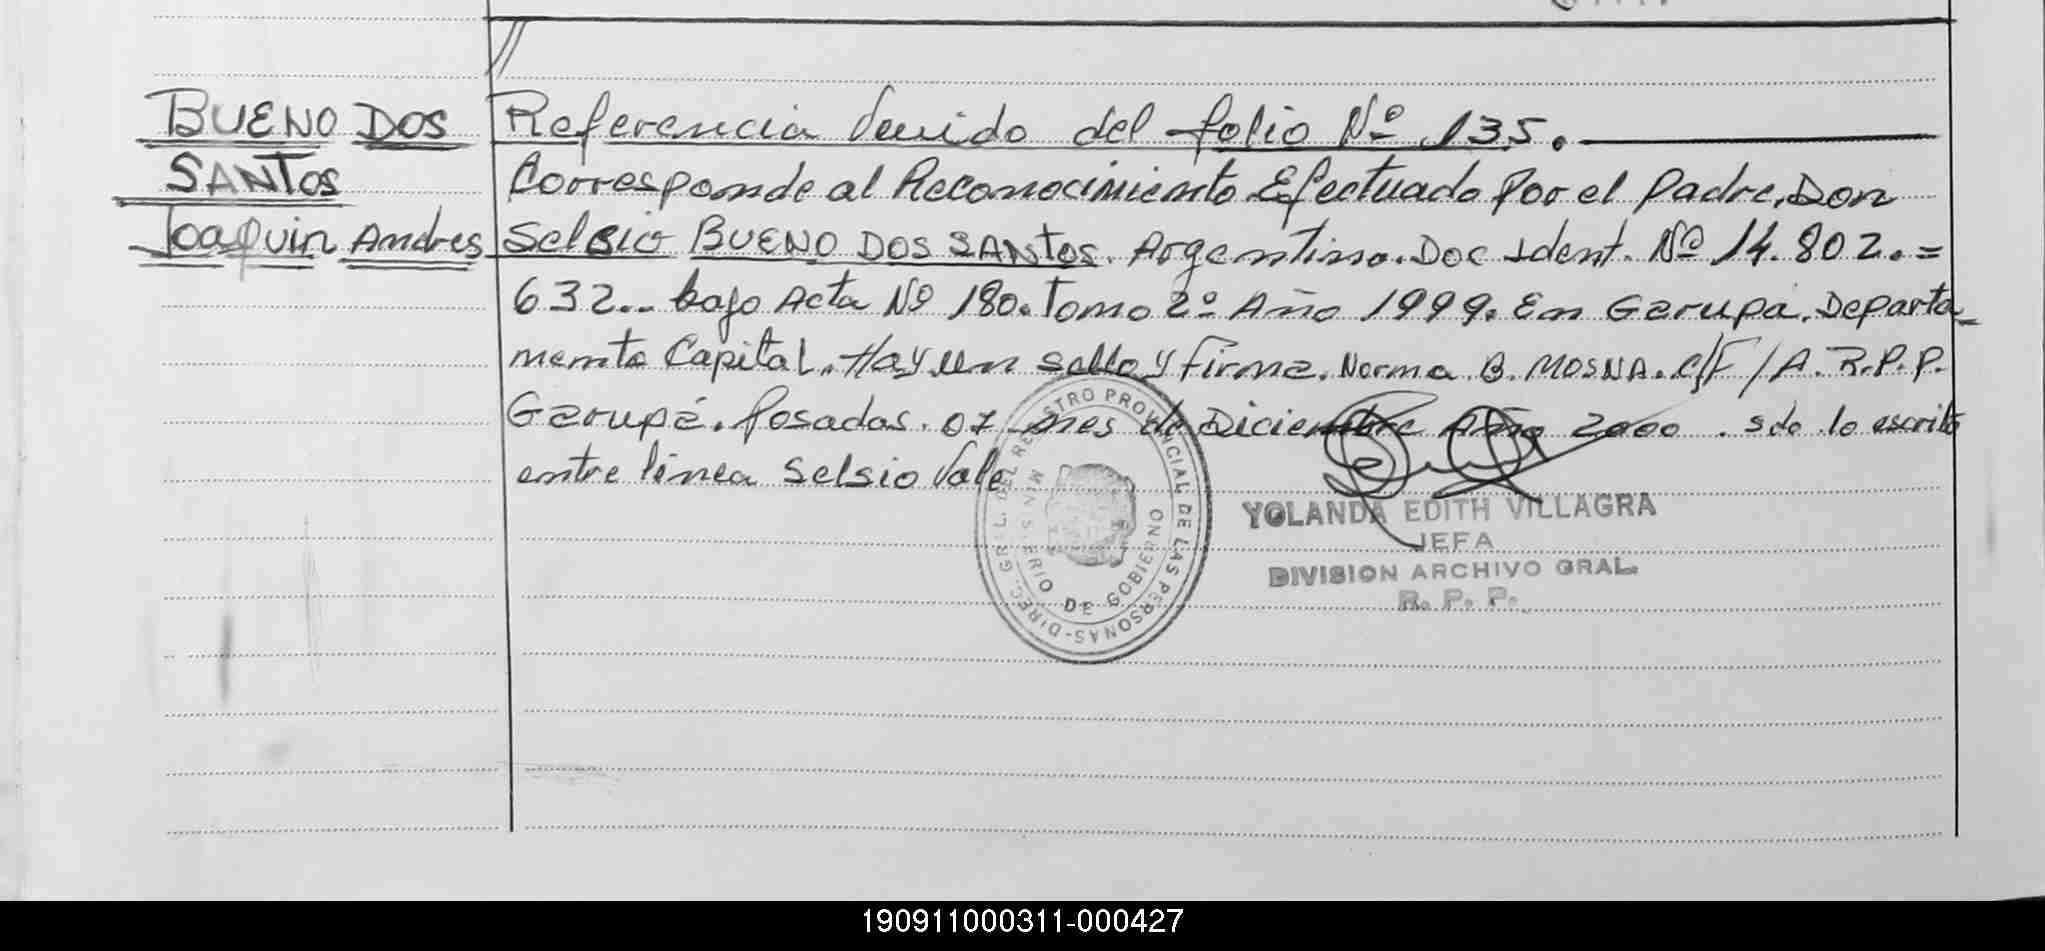 BUENO DOS
SANTOS
Joaquin Andres
Referencia Venido del folio Nº 135.
Corresponde al Reconocimiento Efectuado Por el Padre, Don
Selsio BUENO DOS SANTOS. Argentino. Doc Ident. Nº 14.802.=
632.. bajo Acta Nº 180. Tomo 2º Año 1999. En Garupa. Departa_
mento Capital. Hay un sello y firma. Norma B. MOSNA. E/F/A. R.P.P.
Garupá. Posadas. 07 mes de Diciembre Año 2000. sdo lo escrito
entre linea Selsio Vale
DIREC. GRAL. DEL REGISTRO PROVINCIAL DE LAS PERSONAS-
MINISTERIO DE GOBIERNO
YOLANDA EDITH VILLAGRA
JEFA
DIVISION ARCHIVO GRAL.
R. P. P.
190911000311-000427